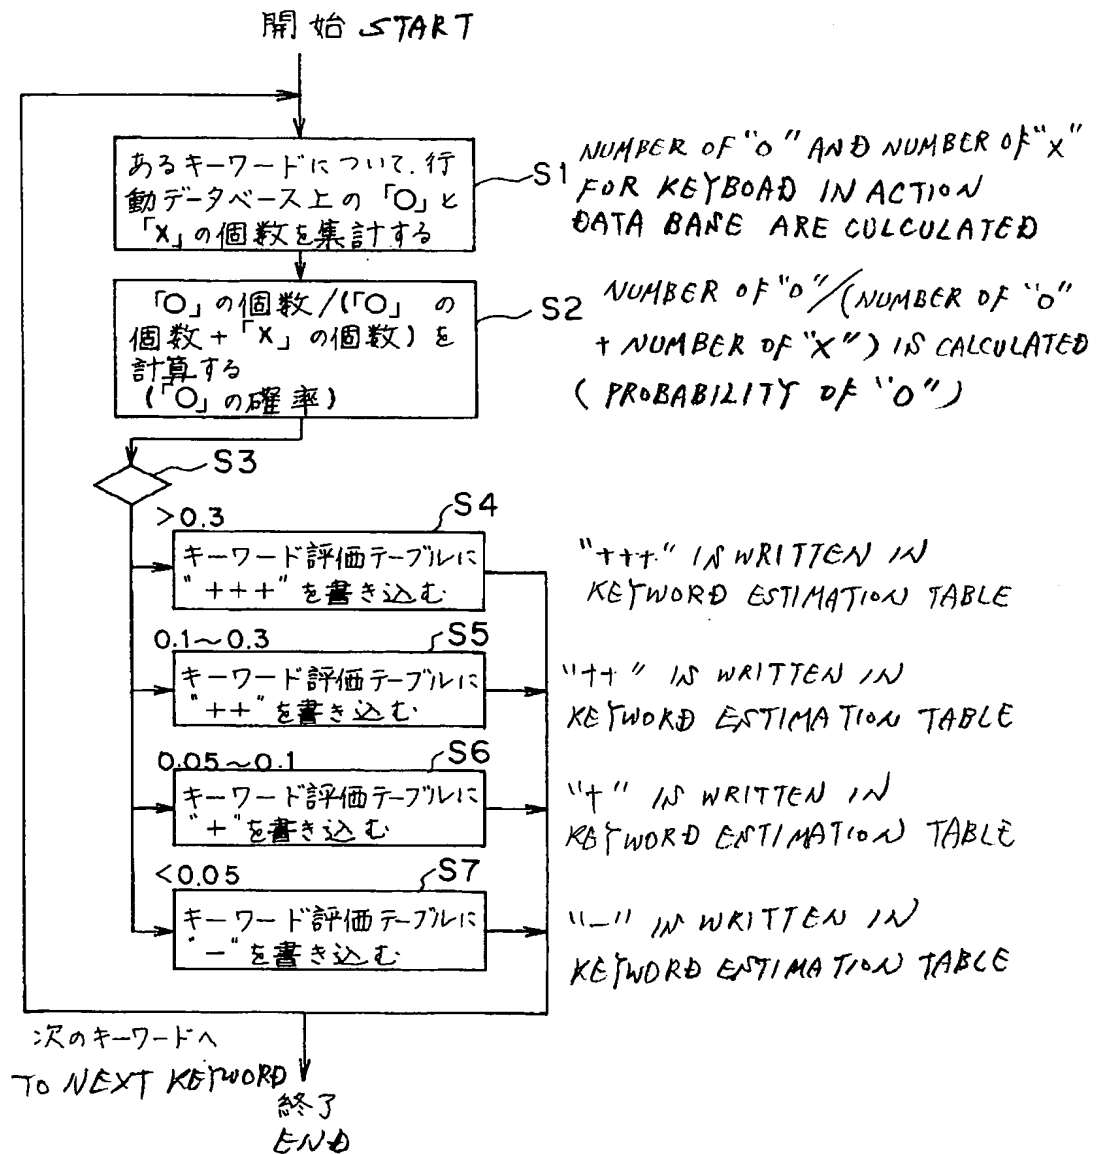 開始 START
あるキーワードについて、行
動データベース上の「O」と
「X」の個数を集計する
S1
NUMBER OF "O" AND NUMBER OF "X"
FOR KEYBOAD IN ACTION
DATA BASE ARE CULCULATED
「O」の個数/(「O」の
個数+「X」の個数)を
計算する
(「O」の確率)
S2
NUMBER OF "O"/(NUMBER OF "O"
+ NUMBER OF "X") IS CALCULATED
(PROBABILITY OF "O")
S3
>0.3
S4
キーワード評価テーブルに
"+++"を書き込む
"+++" IS WRITTEN IN
KEYWORD ESTIMATION TABLE
0.1～0.3
S5
キーワード評価テーブルに
"++"を書き込む
"++" IS WRITTEN IN
KEYWORD ESTIMATION TABLE
0.05～0.1
S6
キーワード評価テーブルに
"+"を書き込む
"+" IS WRITTEN IN
KEYWORD ESTIMATION TABLE
<0.05
S7
キーワード評価テーブルに
"−"を書き込む
"−" IS WRITTEN IN
KEYWORD ESTIMATION TABLE
次のキーワードへ
TO NEXT KEYWORD
終了
END